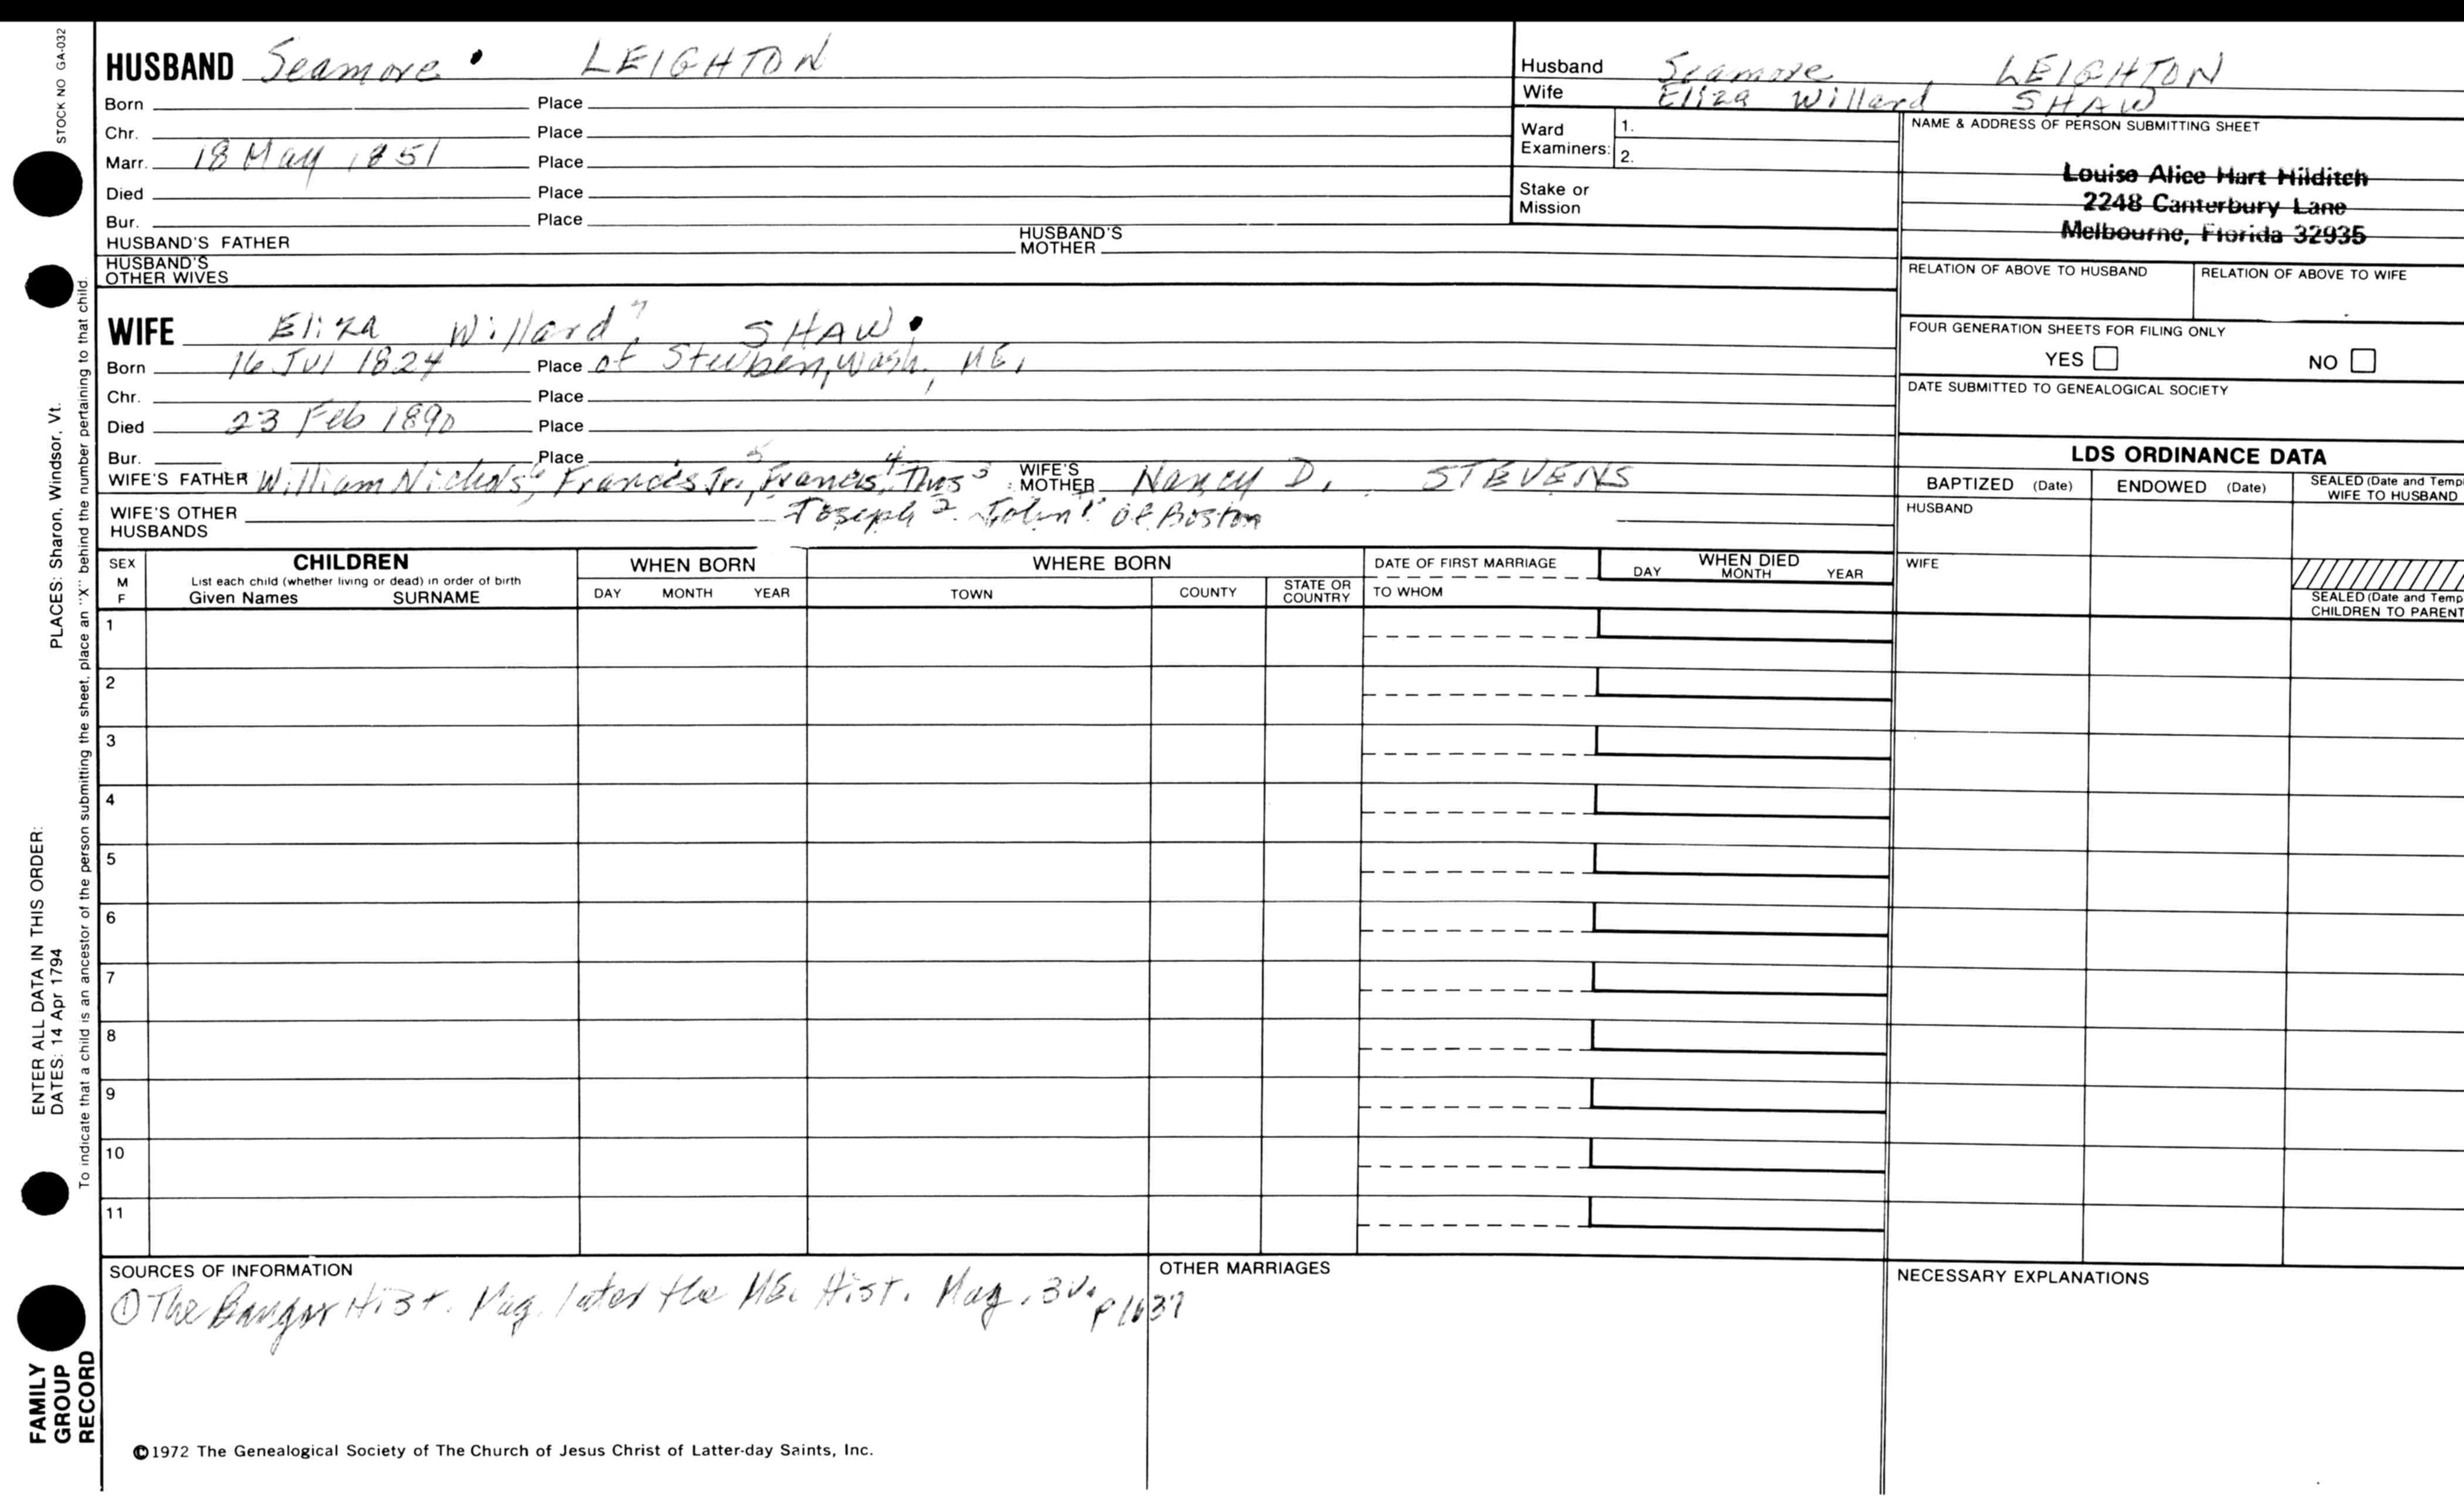 STOCK NO GA-032
HUSBAND Seamore LEIGHTON
Born Place
Chr. Place
Marr. 18 May 1851 Place
Died Place
Bur. Place
HUSBAND'S FATHER HUSBAND'S MOTHER
HUSBAND'S OTHER WIVES
WIFE Eliza Willard 7 SHAW
Born 16 Jul 1824 Place of Steuben, Wash., ME,
Chr. Place
Died 23 Feb 1890 Place
Bur. Place
WIFE'S FATHER William Nichols 6, Francis Jr. 5, Francis 4, Thos 3 WIFE'S MOTHER Nancy D. STEVENS
WIFE'S OTHER HUSBANDS Joseph 2. John 1. of Boston
Husband Seamore LEIGHTON
Wife Eliza Willard SHAW
Ward Examiners: 1.
2.
Stake or Mission
NAME & ADDRESS OF PERSON SUBMITTING SHEET
Louise Alice Hart Hilditch
2248 Canterbury Lane
Melbourne, Florida 32935
RELATION OF ABOVE TO HUSBAND RELATION OF ABOVE TO WIFE
FOUR GENERATION SHEETS FOR FILING ONLY
YES NO
DATE SUBMITTED TO GENEALOGICAL SOCIETY
LDS ORDINANCE DATA
BAPTIZED (Date) ENDOWED (Date) SEALED (Date and Temp
WIFE TO HUSBAND
HUSBAND
WIFE
SEALED (Date and Temp
CHILDREN TO PARENT
SEX M F CHILDREN WHEN BORN WHERE BORN DATE OF FIRST MARRIAGE WHEN DIED
List each child (whether living or dead) in order of birth
Given Names SURNAME DAY MONTH YEAR TOWN COUNTY STATE OR COUNTRY TO WHOM DAY MONTH YEAR
1
2
3
4
5
6
7
8
9
10
11
SOURCES OF INFORMATION
① The Bangor Hist. Mag. later the ME. Hist. Mag. 3V. p1637
OTHER MARRIAGES
NECESSARY EXPLANATIONS
©1972 The Genealogical Society of The Church of Jesus Christ of Latter-day Saints, Inc.
FAMILY
GROUP
RECORD
ENTER ALL DATA IN THIS ORDER:
DATES: 14 Apr 1794 PLACES: Sharon, Windsor, Vt.
To indicate that a child is an ancestor of the person submitting the sheet, place an "X" behind the number pertaining to that child.